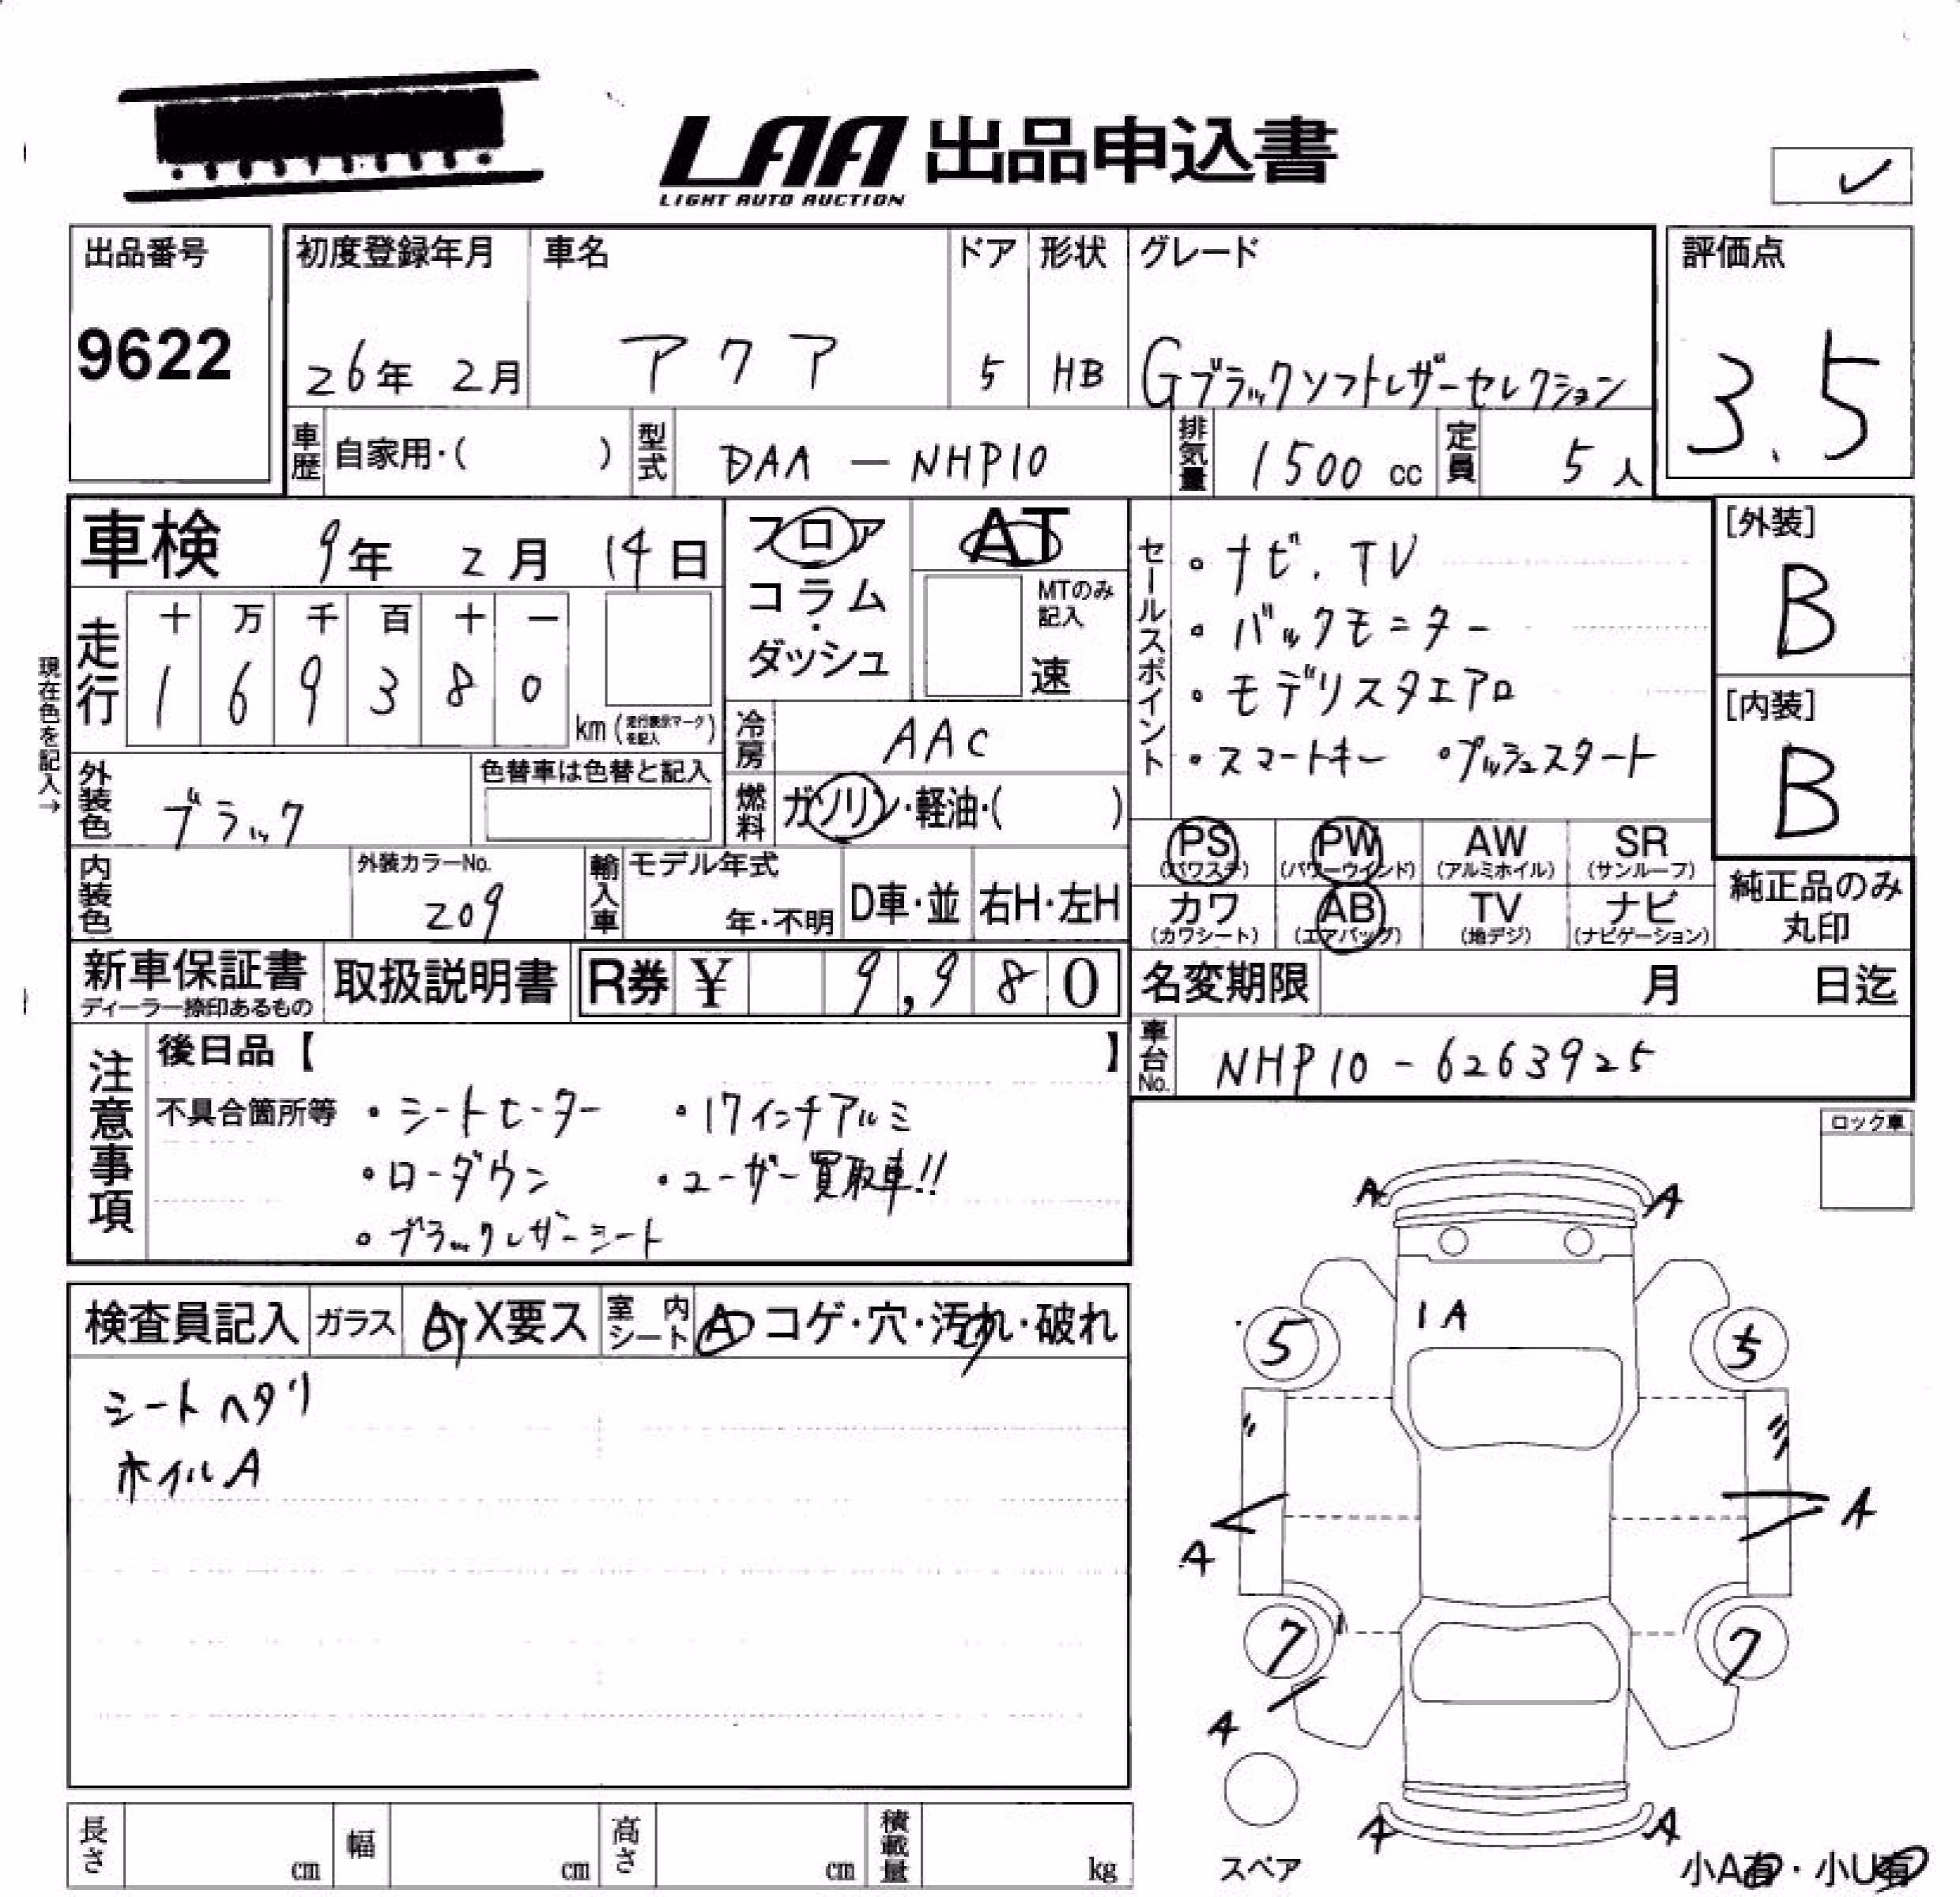 LAA 出品申込書
LIGHT AUTO AUCTION
出品番号
9622
初度登録年月
26年 2月
車名
アクア
ドア
5
形状
HB
グレード
Gブラックソフトレザーセレクション
評価点
3.5
車歴 自家用・( )
型式 DAA-NHP10
排気量 1500 cc
定員 5人
車検 9年 2月 14日
フロア・コラム・ダッシュ
AT
MTのみ記入
速
セールスポイント
・ナビ、TV
・バックモニター
・モデリスタエアロ
・スマートキー ・プッシュスタート
[外装]
B
[内装]
B
現在色を記入→
走行
十 万 千 百 十 一
1 6 9 3 8 0
km (走行表示マークを記入)
冷房 AAC
外装色 ブラック
色替車は色替と記入
燃料 ガソリン・軽油・( )
PS (パワステ)
PW (パワーウインド)
AW (アルミホイル)
SR (サンルーフ)
カワ (カワシート)
AB (エアバッグ)
TV (地デジ)
ナビ (ナビゲーション)
純正品のみ丸印
内装色
外装カラーNo. 209
輸入車
モデル年式
年・不明
D車・並
右H・左H
新車保証書
ディーラー捺印あるもの
取扱説明書
R券 ¥ 9,980
名変期限 月 日迄
車台No. NHP10-6263925
注意事項
後日品【 】
不具合箇所等
・シートヒーター ・17インチアルミ
・ローダウン ・ユーザー買取車!!
・ブラックレザーシート
ロック車
検査員記入
ガラス A・X要ス
室内シート A・コゲ・穴・汚れ・破れ
シートヘタリ
ホイルA
A A
1A
5 5
A A
7 7
A
A A
スペア
小A有・小U有
長さ cm
幅 cm
高さ cm
積載量 kg